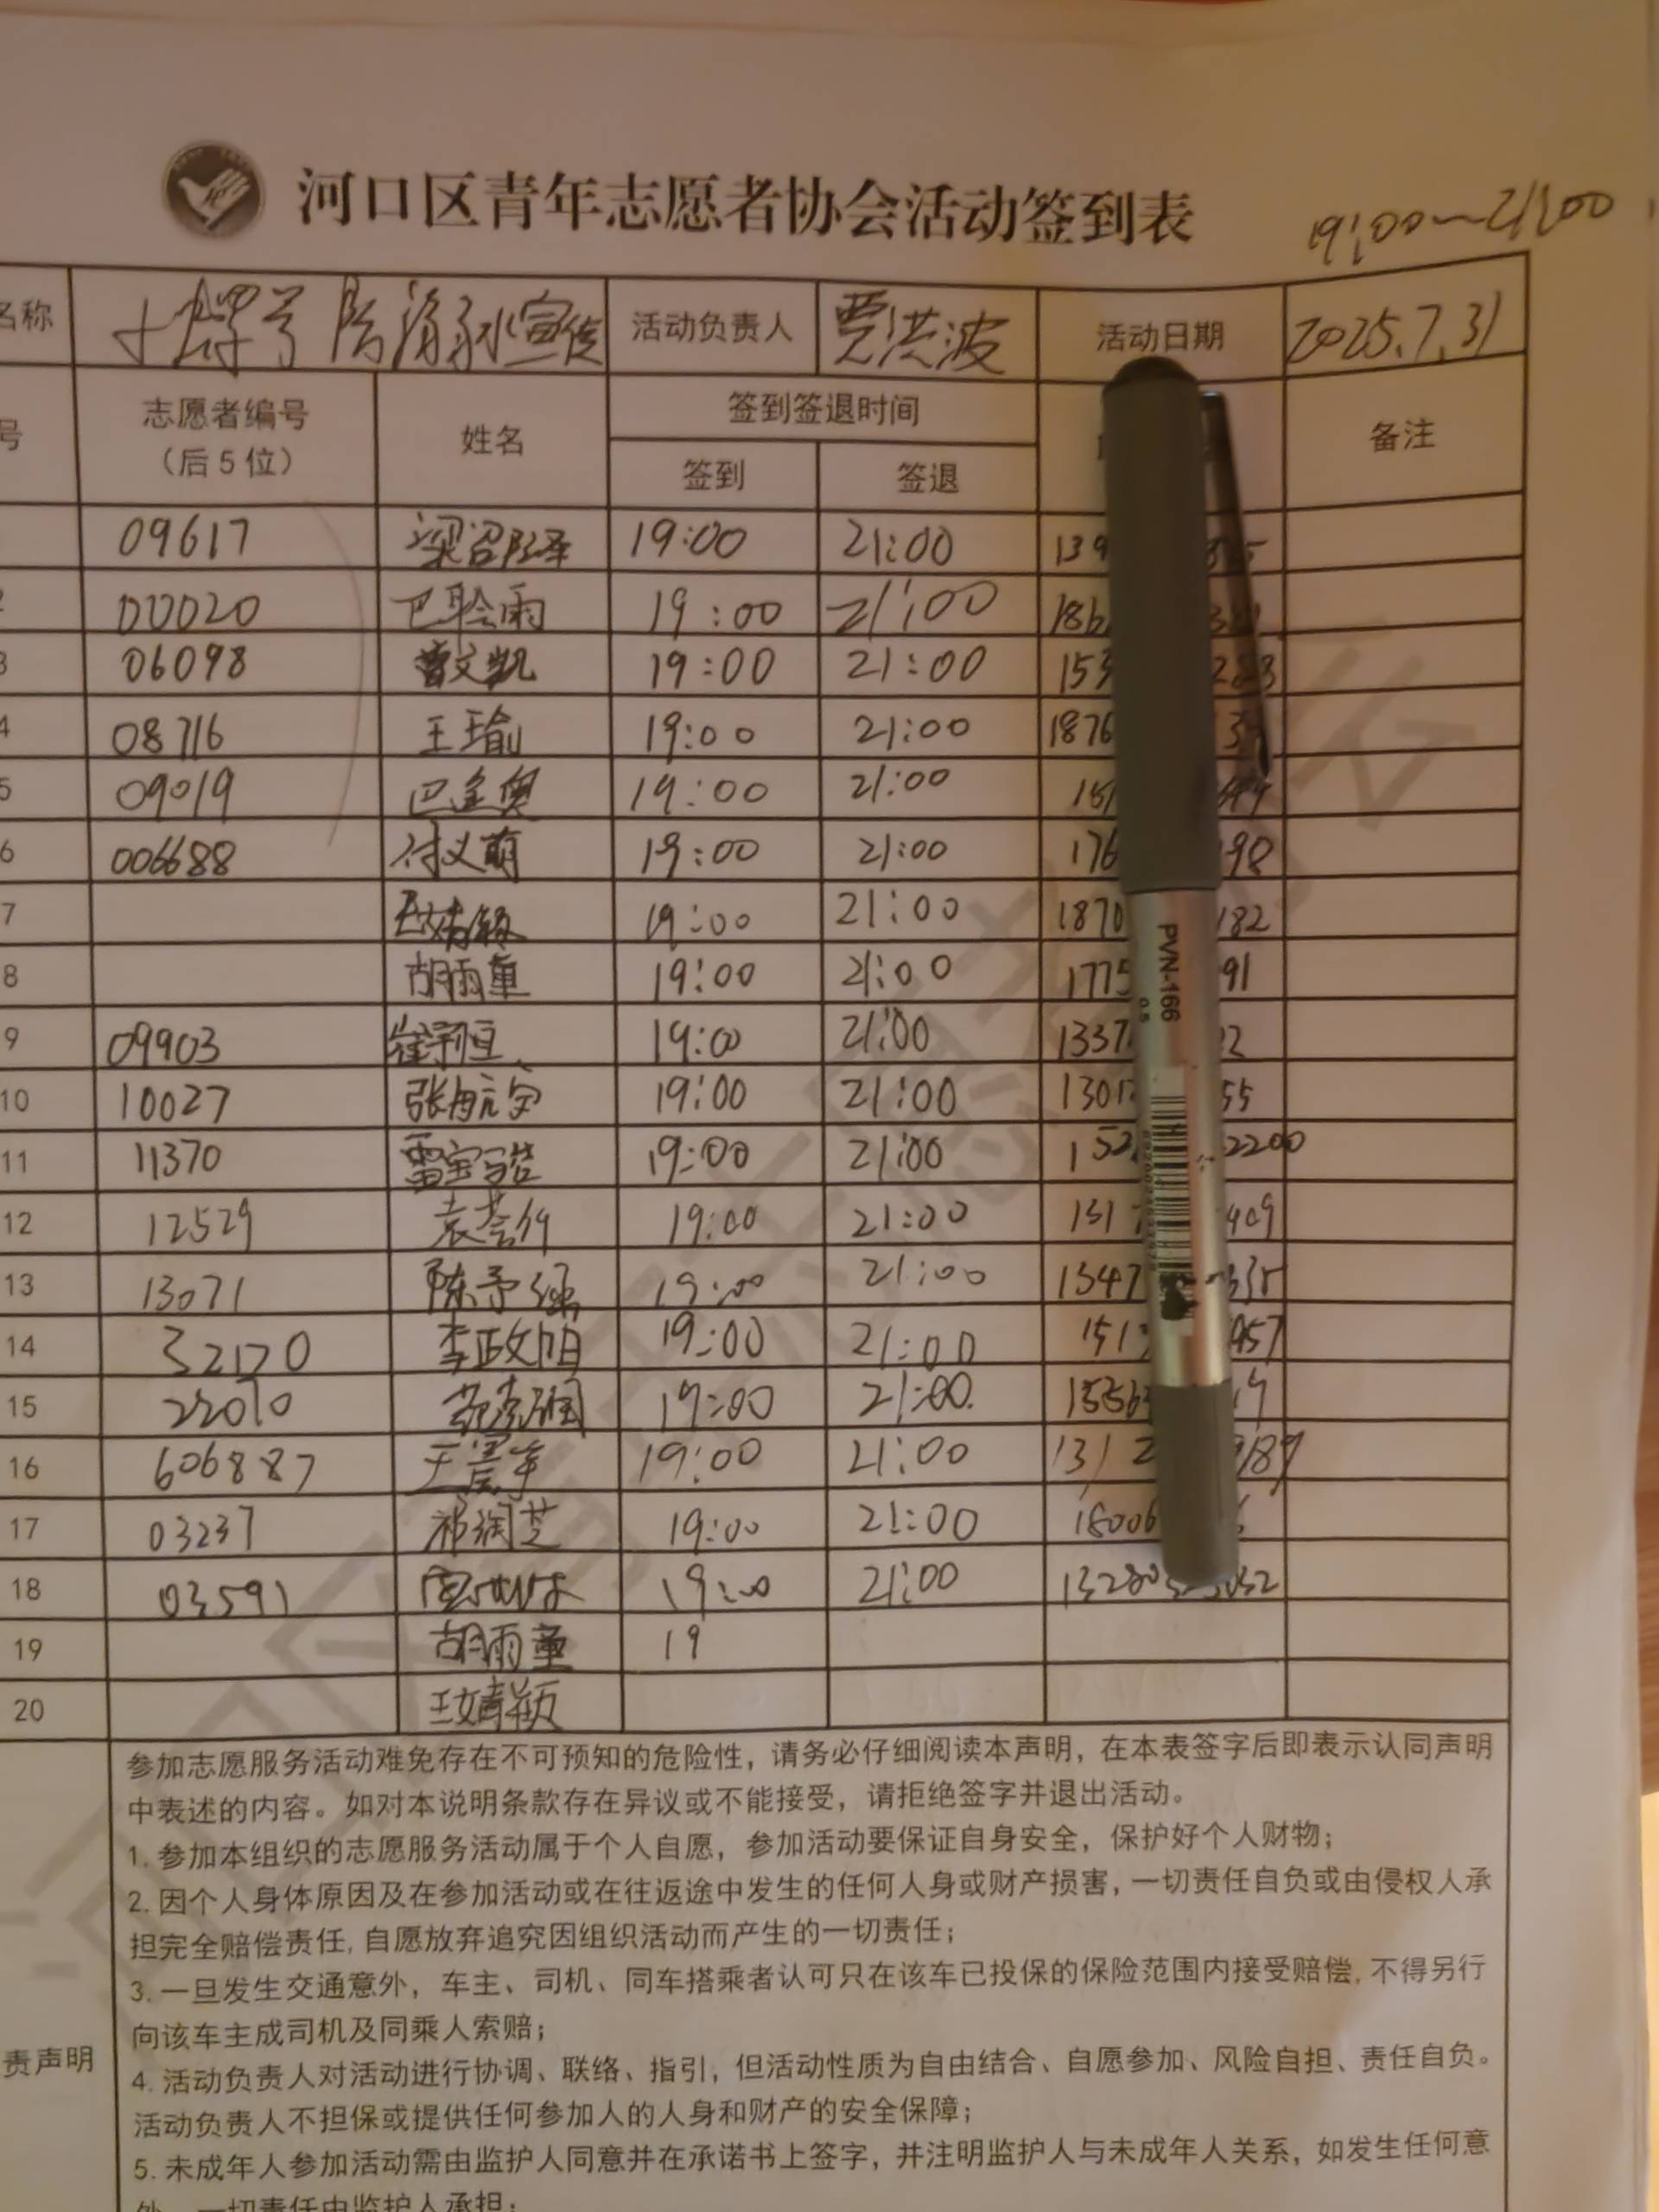 河口区青年志愿者协会活动签到表
19:00~21:00
名称 防溺水宣传 活动负责人 贾洪波 活动日期 2025.7.31
号 志愿者编号 姓名 签到签退时间 备注
（后5位） 签到 签退
09617 19:00 21:00 139
2 00020 巴聆雨 19:00 21:00 186
3 06098 曹文凯 19:00 21:00 153 283
4 08716 王瑜 19:00 21:00 1876
5 09019 19:00 21:00 151
6 006688 付义萌 19:00 21:00 176 98
7 19:00 21:00 1870 182
8 胡雨童 19:00 21:00 1775 91
9 09903 崔宗恒 19:00 21:00 1337 2
10 10027 张航 19:00 21:00 1301 55
11 11370 雷宝 19:00 21:00 152 2200
12 12529 袁荟竹 19:00 21:00 131 409
13 13071 陈予 19:00 21:00 1347 335
14 32170 李政 19:00 21:00 151 957
15 22010 19:00 21:00. 1556 19
16 606887 19:00 21:00 131 2 9189
17 03237 祁润芝 19:00 21:00 18006
18 03591 19:00 21:00 13280
19 胡雨童 19
20 王婧颖
PVN-166
0.5
参加志愿服务活动难免存在不可预知的危险性，请务必仔细阅读本声明，在本表签字后即表示认同声明
中表述的内容。如对本说明条款存在异议或不能接受，请拒绝签字并退出活动。
1. 参加本组织的志愿服务活动属于个人自愿，参加活动要保证自身安全，保护好个人财物；
2. 因个人身体原因及在参加活动或在往返途中发生的任何人身或财产损害，一切责任自负或由侵权人承
担完全赔偿责任，自愿放弃追究因组织活动而产生的一切责任；
3. 一旦发生交通意外，车主、司机、同车搭乘者认可只在该车已投保的保险范围内接受赔偿，不得另行
向该车主成司机及同乘人索赔；
责声明
4. 活动负责人对活动进行协调、联络、指引，但活动性质为自由结合、自愿参加、风险自担、责任自负。
活动负责人不担保或提供任何参加人的人身和财产的安全保障；
5. 未成年人参加活动需由监护人同意并在承诺书上签字，并注明监护人与未成年人关系，如发生任何意
外，一切责任由监护人承担；